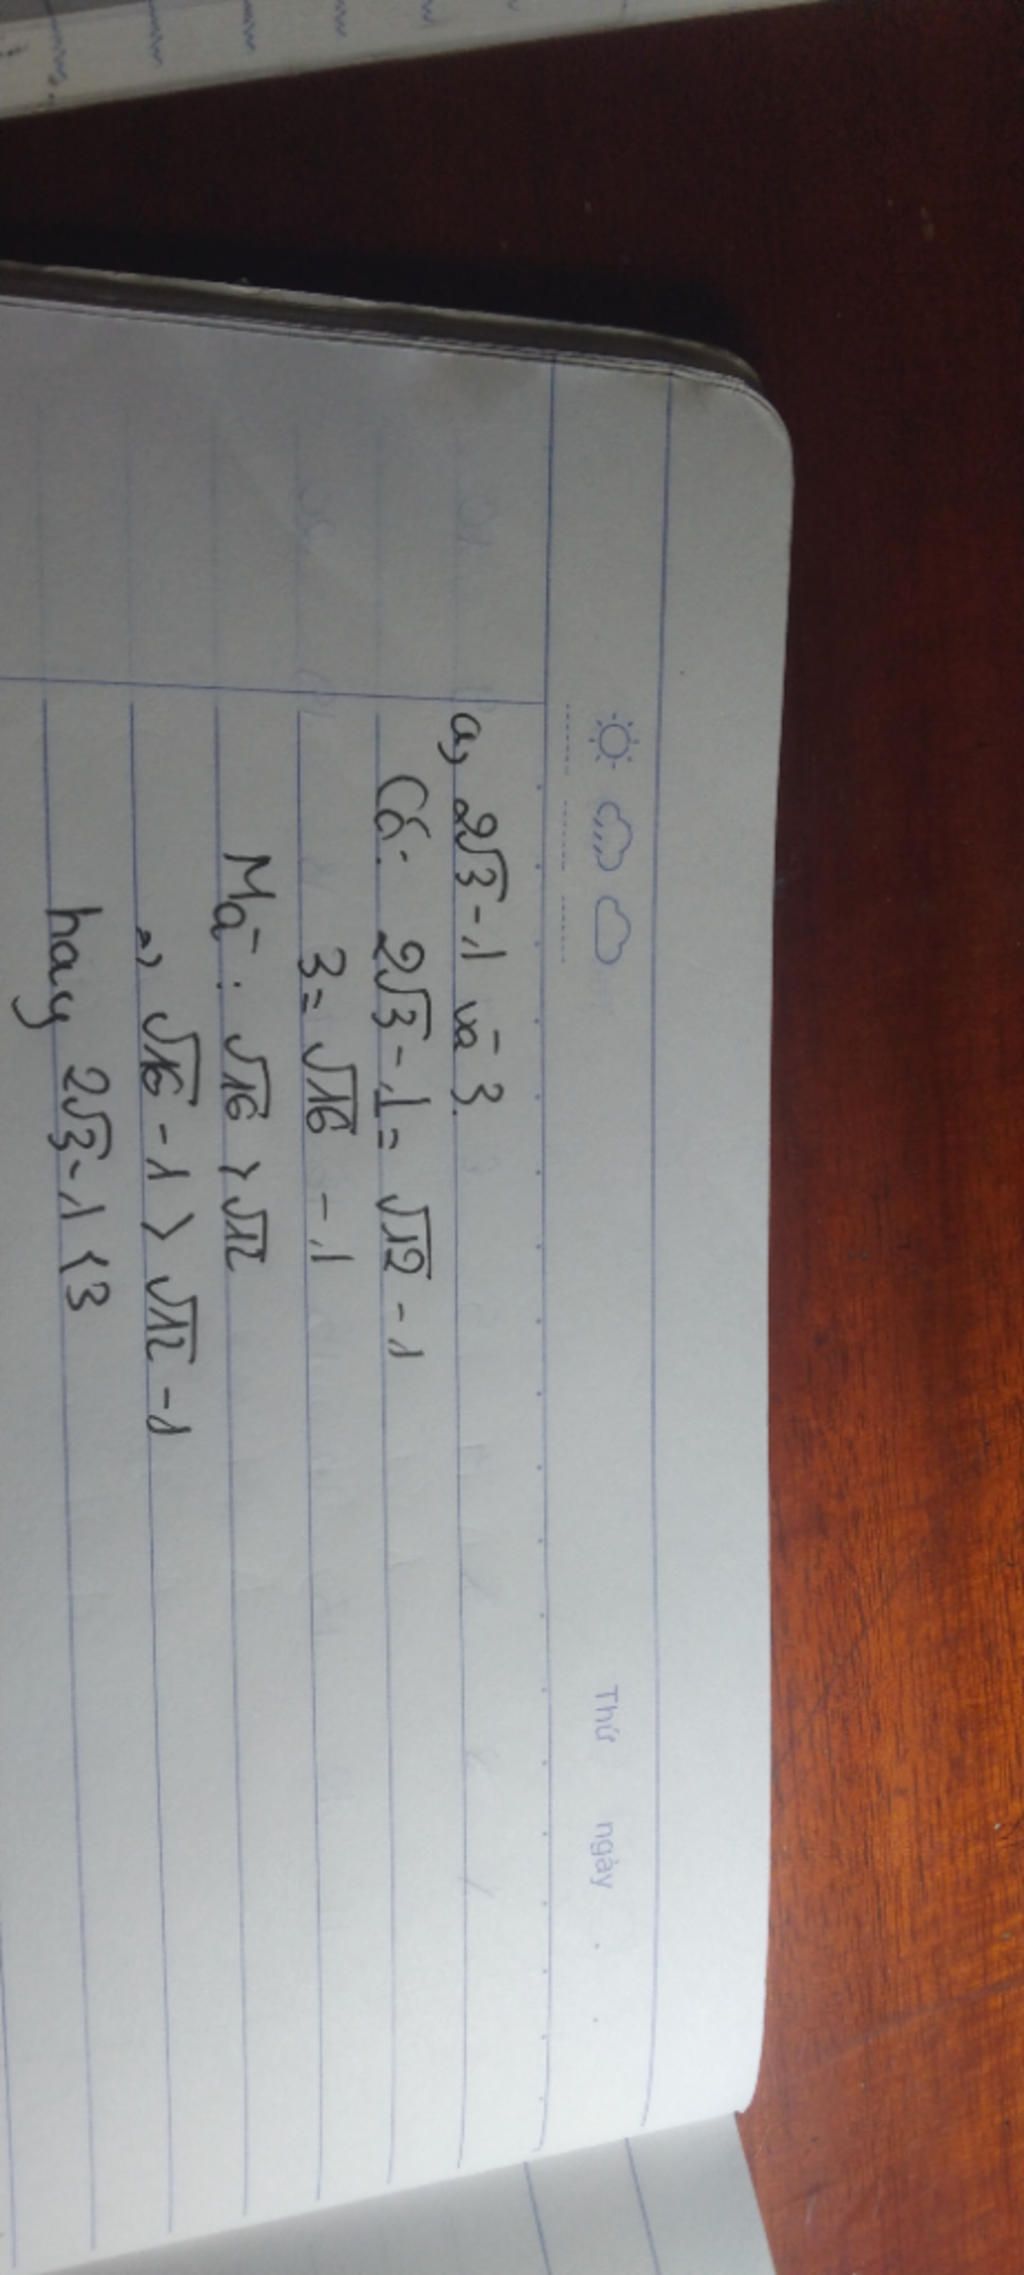 Thứ ngày . .
a, 2√3 - 1 và 3
Có: 2√3 - 1 = √12 - 1
3 = √16 - 1
Mà: √16 > √12
=> √16 - 1 > √12 - 1
hay 2√3 - 1 < 3